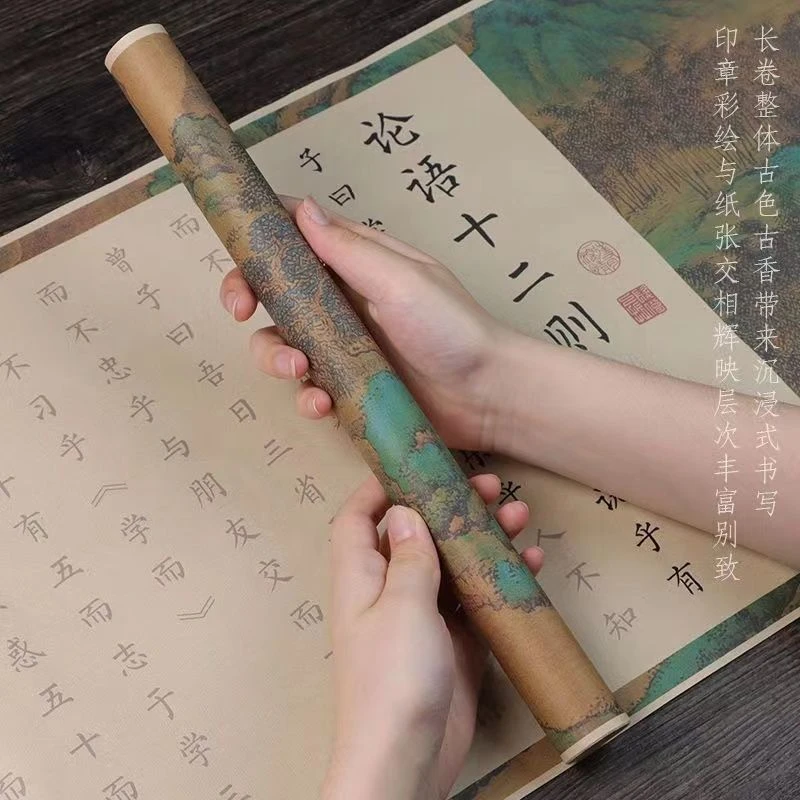 长卷整体古色古香带来沉浸式书写
印章彩绘与纸张交相辉映层次丰富别致
论语十二则
子曰学
说乎有
乎人不知
而不
曾子曰吾日三省
而不忠乎与朋友交而
不习乎《学而》
十有五而志于学
惑五十而